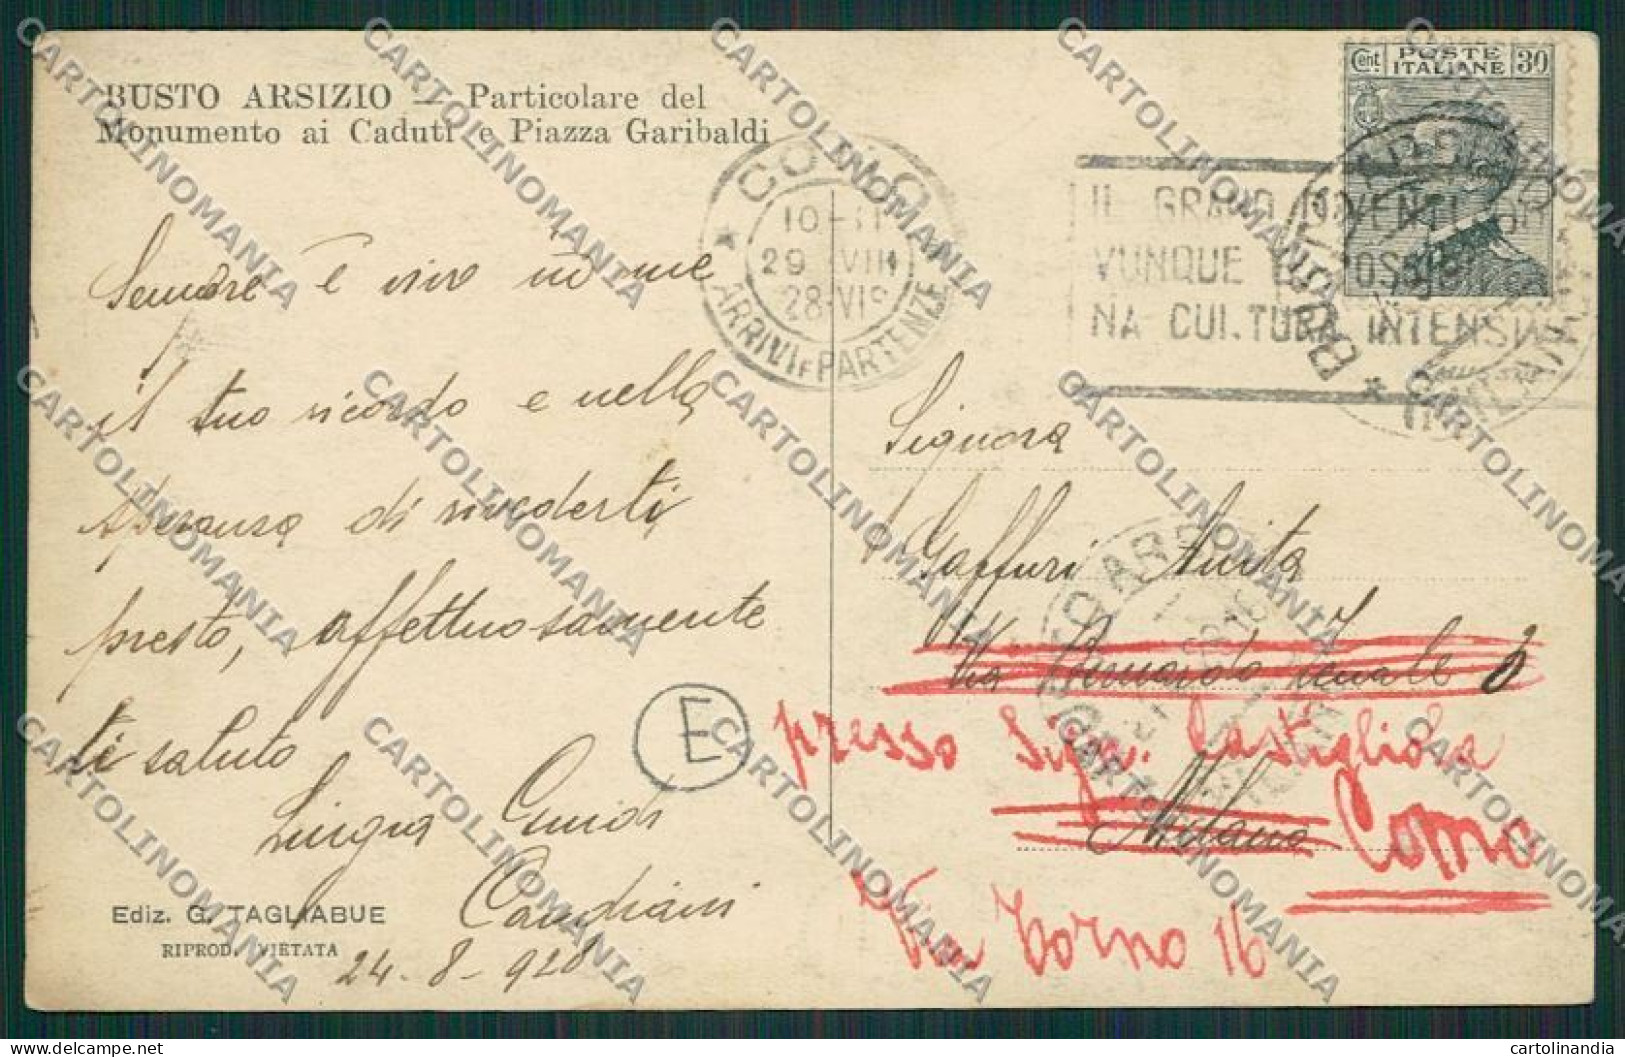 BUSTO ARSIZIO — Particolare del
Monumento ai Caduti e Piazza Garibaldi
Cent. POSTE ITALIANE 30
COMO
10-11
29 VIII
28·VI
ARRIVI E PARTENZE
IL GRANO
VUNQUE
NA CULTURA INTENSIVA
BUSTO ARSIZIO
MILANO
Sempre è vivo in me
il tuo ricordo e nella
speranza di rivederti
presto, affettuosamente
ti saluto
Luigia Guidi
Candiani
24-8-928
E
Signora
Gaffuri Anita
Via Bernardo 3
Milano
presso Sigr. Castigliola
Como
Via Torno 16
Ediz. G. TAGLIABUE
RIPROD. VIETATA
CARTOLINOMANIA
cartolinandia